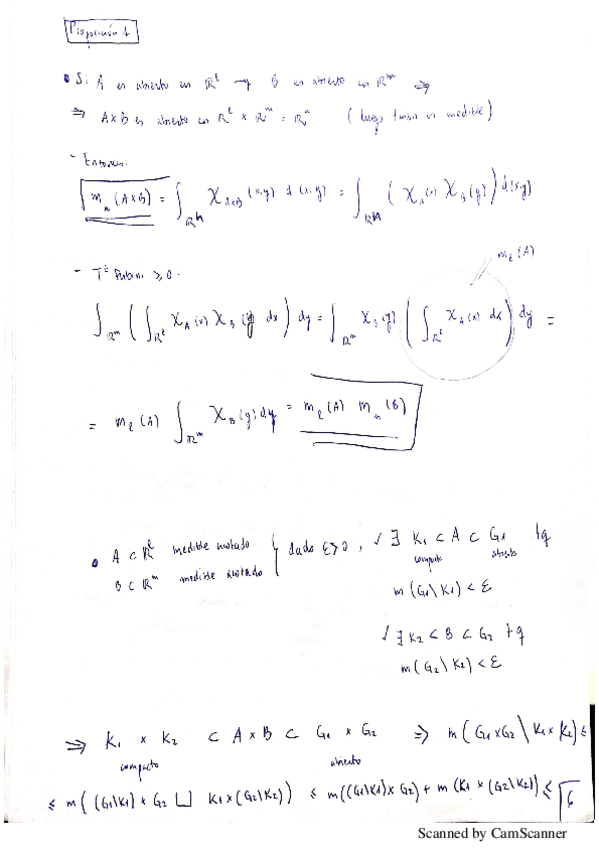 Proposición 1
• Si A es abierto en ℝ^ℓ y B es abierto en ℝ^m ⇒
⇒ A×B es abierto en ℝ^ℓ × ℝ^m = ℝ^n (luego medible)
- Entonces:
m_n(A×B) = ∫_{ℝ^n} χ_{A×B}(x,y) d(x,y) = ∫_{ℝ^n} (χ_A(x) χ_B(y)) d(x,y)
- Tª Fubini ≥ 0.
m_ℓ(A)
∫_{ℝ^m} (∫_{ℝ^ℓ} χ_A(x) χ_B(y) dx) dy = ∫_{ℝ^m} χ_B(y) (∫_{ℝ^ℓ} χ_A(x) dx) dy =
= m_ℓ(A) ∫_{ℝ^m} χ_B(y) dy = m_ℓ(A) m_m(B)
• A ⊂ ℝ^ℓ medible acotado } dado ε>0, √ ∃ K₁ ⊂ A ⊂ G₁ tq
compacto abierto
B ⊂ ℝ^m medible acotado
m(G₁\K₁) < ε
√ ∃ K₂ ⊂ B ⊂ G₂ tq
m(G₂\K₂) < ε
⇒ K₁ × K₂ ⊂ A×B ⊂ G₁ × G₂ ⇒ m(G₁×G₂ \ K₁×K₂) ≤
compacto abierto
≤ m((G₁\K₁)×G₂ ⊔ K₁×(G₂\K₂)) ≤ m((G₁\K₁)×G₂) + m(K₁×(G₂\K₂)) ≤
Scanned by CamScanner